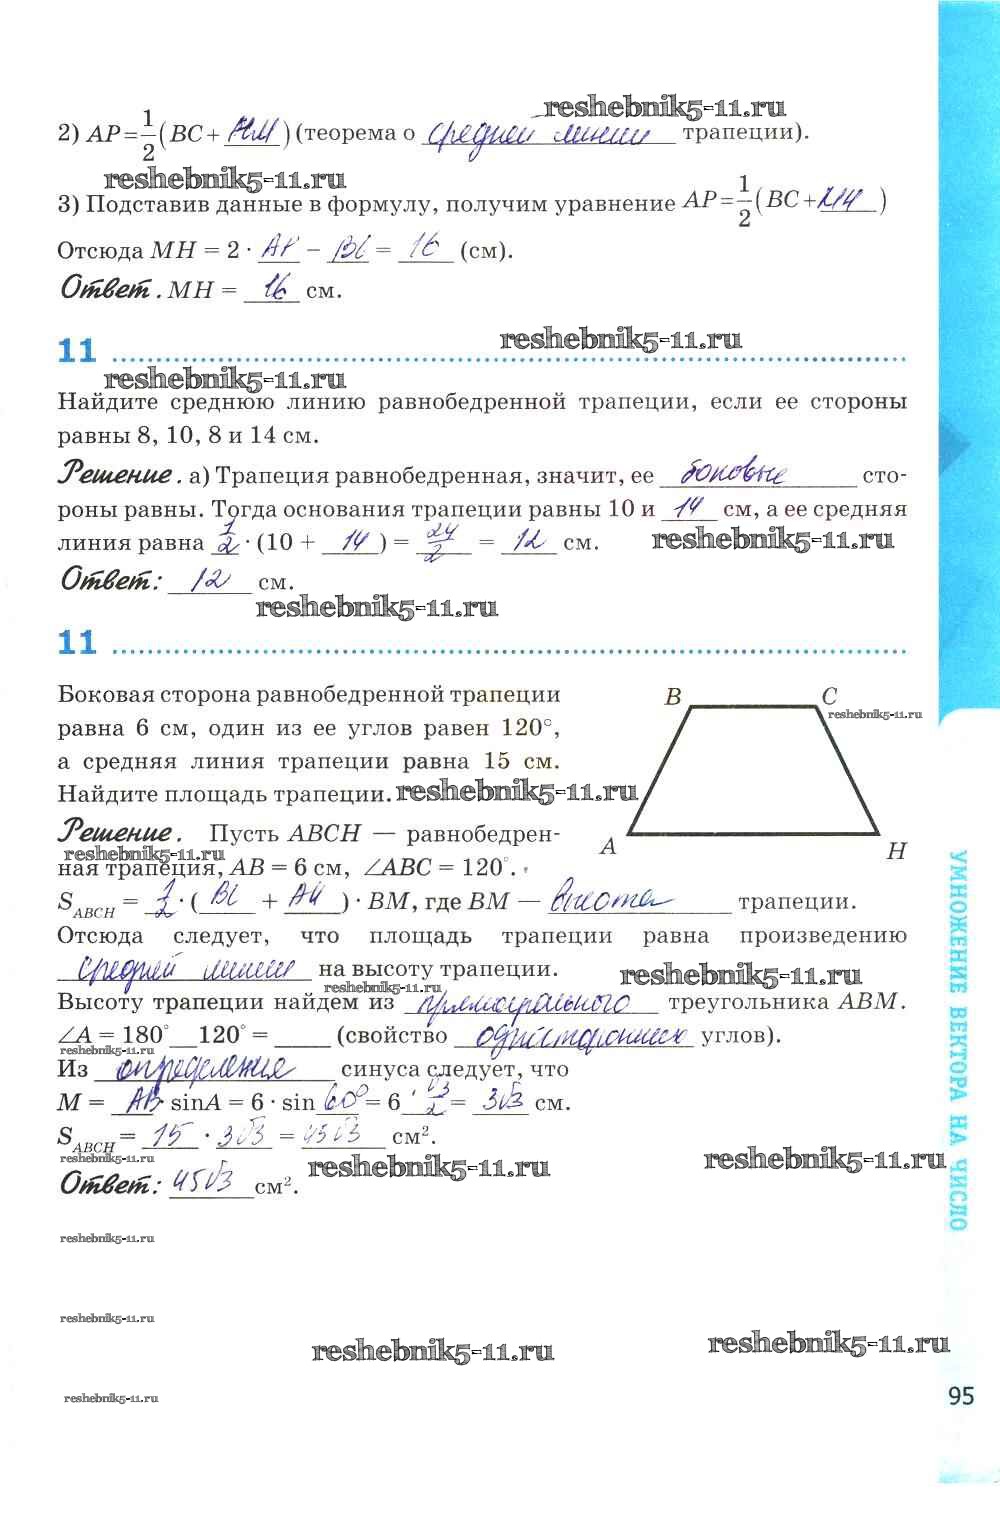 reshebnik5-11.ru
2) AP=1/2(BC+ HM )(теорема о средней линии трапеции).
reshebnik5-11.ru
3) Подставив данные в формулу, получим уравнение AP=1/2(BC+ МН )
Отсюда MH = 2 · AP − BC = 16 (см).
Ответ. MH = 16 см.
11
reshebnik5-11.ru
reshebnik5-11.ru
Найдите среднюю линию равнобедренной трапеции, если ее стороны
равны 8, 10, 8 и 14 см.
Решение. а) Трапеция равнобедренная, значит, ее боковые сто-
роны равны. Тогда основания трапеции равны 10 и 14 см, а ее средняя
линия равна 1/2 · (10 + 14 ) = 24/2 = 12 см. reshebnik5-11.ru
Ответ: 12 см.
reshebnik5-11.ru
11
Боковая сторона равнобедренной трапеции
равна 6 см, один из ее углов равен 120°,
а средняя линия трапеции равна 15 см.
Найдите площадь трапеции. reshebnik5-11.ru
B C
reshebnik5-11.ru
A H
Решение. Пусть ABCH — равнобедрен-
reshebnik5-11.ru
ная трапеция, AB = 6 см, ∠ABC = 120°.
S ABCH = 1/2 · ( BC + AH ) · BM, где BM — высота трапеции.
Отсюда следует, что площадь трапеции равна произведению
средней линии на высоту трапеции. reshebnik5-11.ru
reshebnik5-11.ru
Высоту трапеции найдем из прямоугольного треугольника ABM.
∠A = 180° __ 120° = ____ (свойство односторонних углов).
reshebnik5-11.ru
Из определения синуса следует, что
M = AB · sinA = 6 · sin 60° = 6 · √3/2 = 3√3 см.
S ABCH = 15 · 3√3 = 45√3 см².
reshebnik5-11.ru
reshebnik5-11.ru reshebnik5-11.ru
Ответ: 45√3 см².
reshebnik5-11.ru
reshebnik5-11.ru
reshebnik5-11.ru reshebnik5-11.ru
reshebnik5-11.ru
УМНОЖЕНИЕ ВЕКТОРА НА ЧИСЛО
95